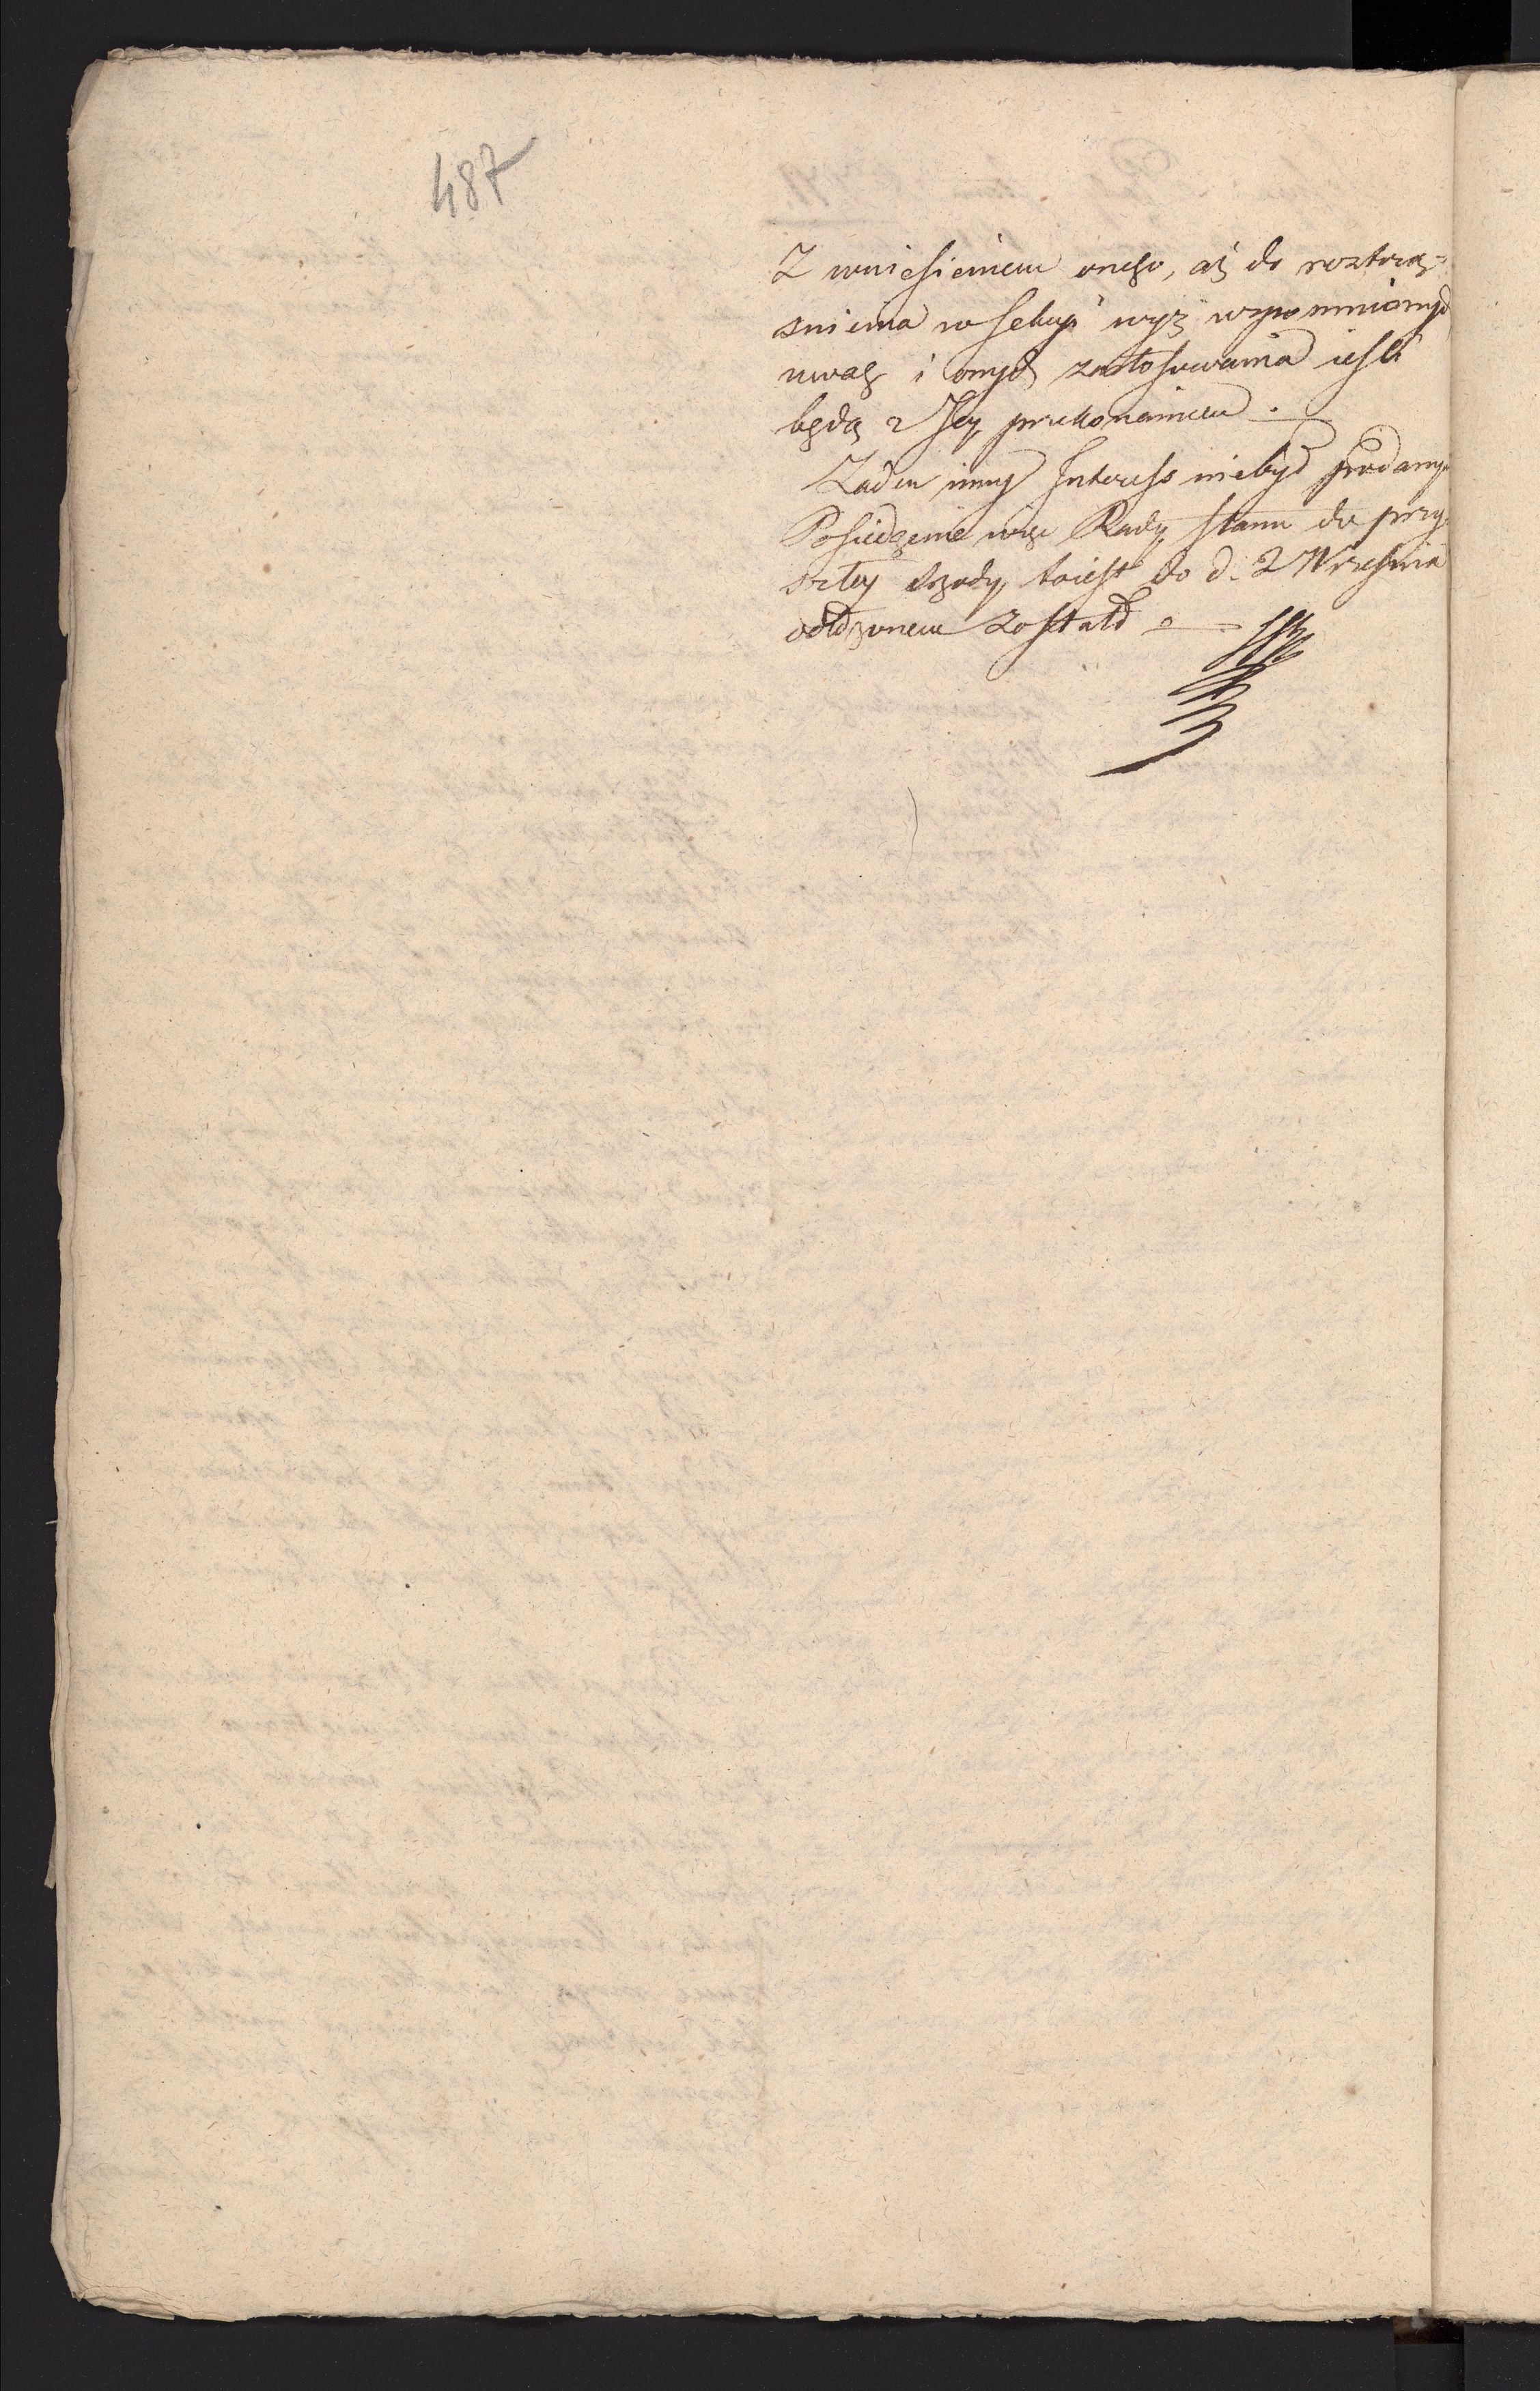 487
Z wniesieniem onego, aż do roztrzą=
snienia w Sekcyi wyż wspomnionych
uwag i onych zastosowania iesli
będą z Jey przekonaniem.
Żaden inny Interess niebył podany
Posiedzenie więc Rady Stanu do przy
szłey Srody, toiest do d. 2 Wrzesnia
odłożonem został